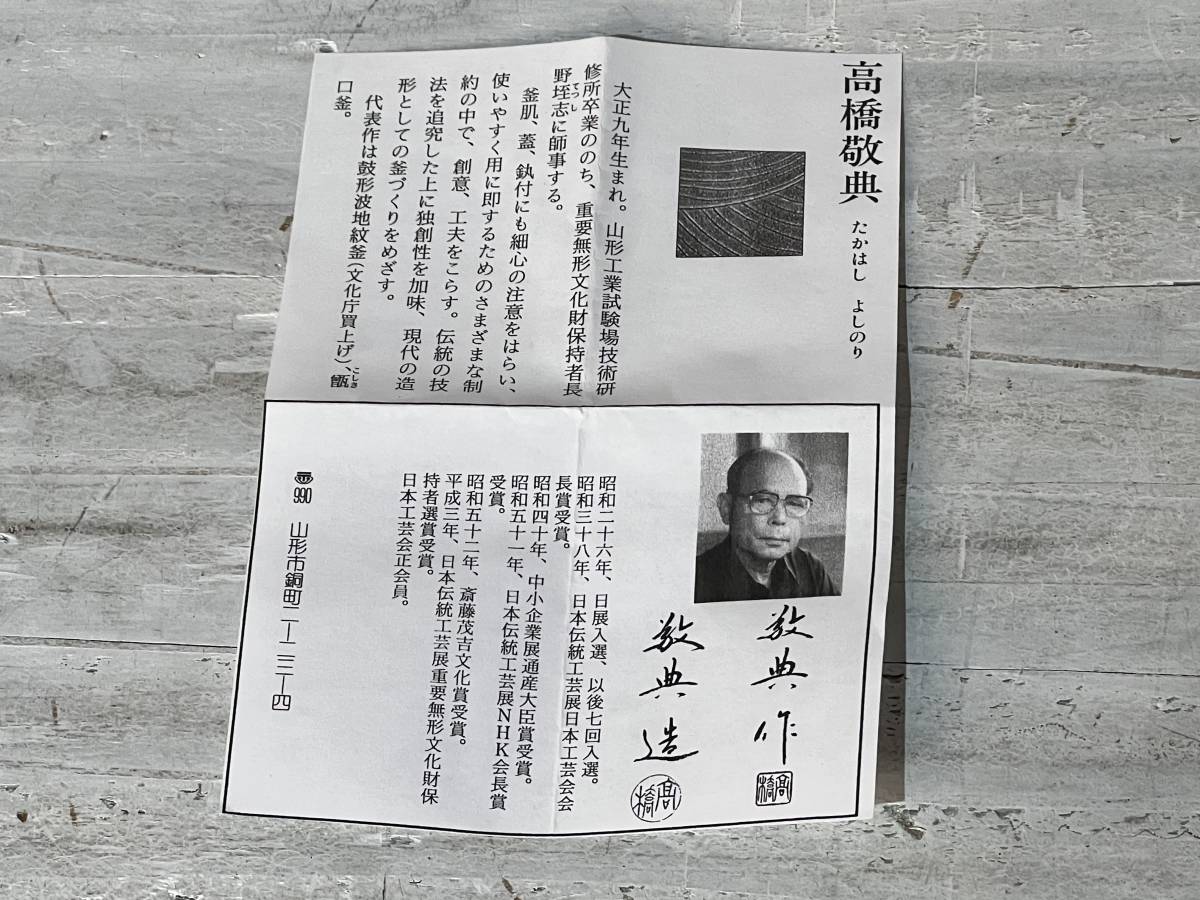 高橋敬典 たかはし よしのり
大正九年生まれ。山形工業試験場技術研
修所卒業ののち、重要無形文化財保持者長
野垤志に師事する。
てつし
釜肌、蓋、釻付にも細心の注意をはらい、
使いやすく用に即するためのさまざまな制
約の中で、創意、工夫をこらす。伝統の技
法を追究した上に独創性を加味、現代の造
形としての釜づくりをめざす。
代表作は鼓形波地紋釜(文化庁買上げ)、甑
こしき
口釜。
敬典作
高橋
敬典造
高橋
昭和二十六年、日展入選、以後七回入選。
昭和三十八年、日本伝統工芸展日本工芸会会
長賞受賞。
昭和四十年、中小企業展通産大臣賞受賞。
昭和五十一年、日本伝統工芸展NHK会長賞
受賞。
昭和五十二年、斎藤茂吉文化賞受賞。
平成三年、日本伝統工芸展重要無形文化財保
持者選賞受賞。
日本工芸会正会員。
990 山形市銅町二ー二ー四